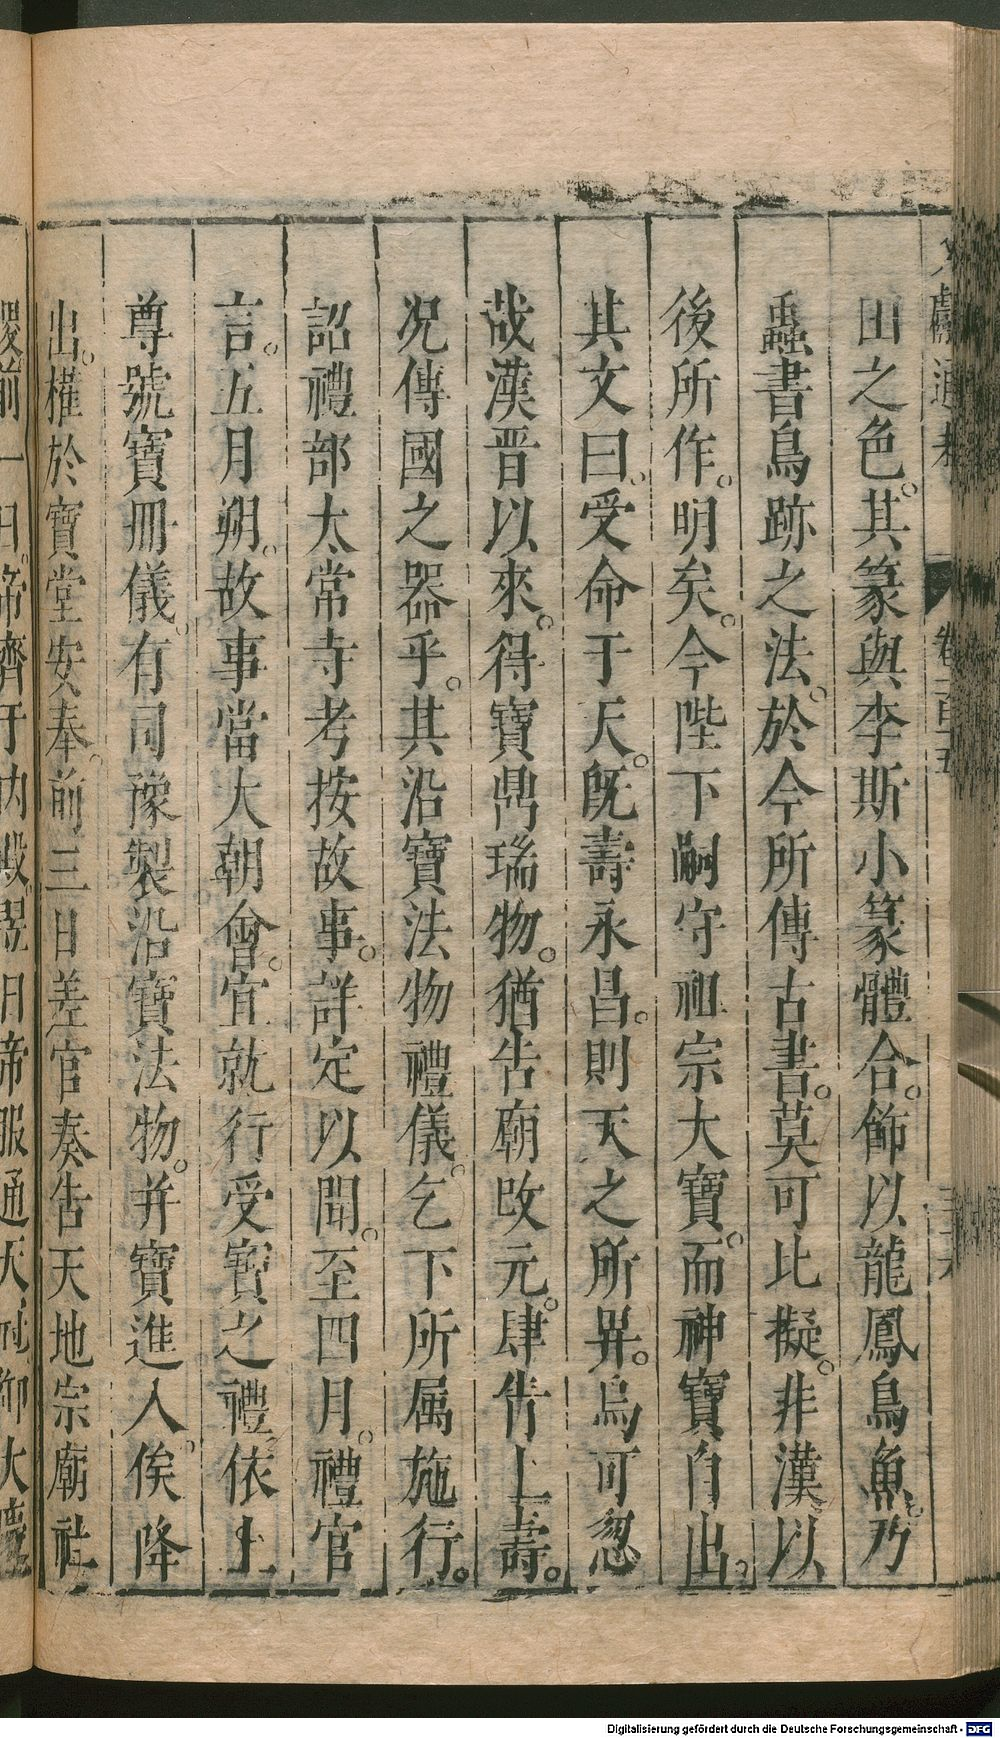 田之色其篆與李斯小篆體合飾以龍鳳鳥魚乃
蟲書鳥跡之法於今所傳古書莫可比擬非漢以
後所作明矣今陛下嗣守祖宗大寶而神寶自出
其文曰受命于天旣壽永昌則天之所畀烏可忽
哉漢晉以來得寶鼎瑞物猶告廟改元肆眚上壽
况傳國之器乎其沿寶法物禮儀乞下所属施行
詔禮部太常寺考按故事詳定以聞至四月禮官
言五月朔故事當大朝會宜就行受寶之禮依上
尊號寶冊儀有司豫製沿寶法物并寶進入俟降
出權於寶堂安奉前三日差官奏告天地宗廟社
稷前一日帝齋于内殿翌日帝服通天冠御大慶
Digitalisierung gefördert durch die Deutsche Forschungsgemeinschaft - DFG